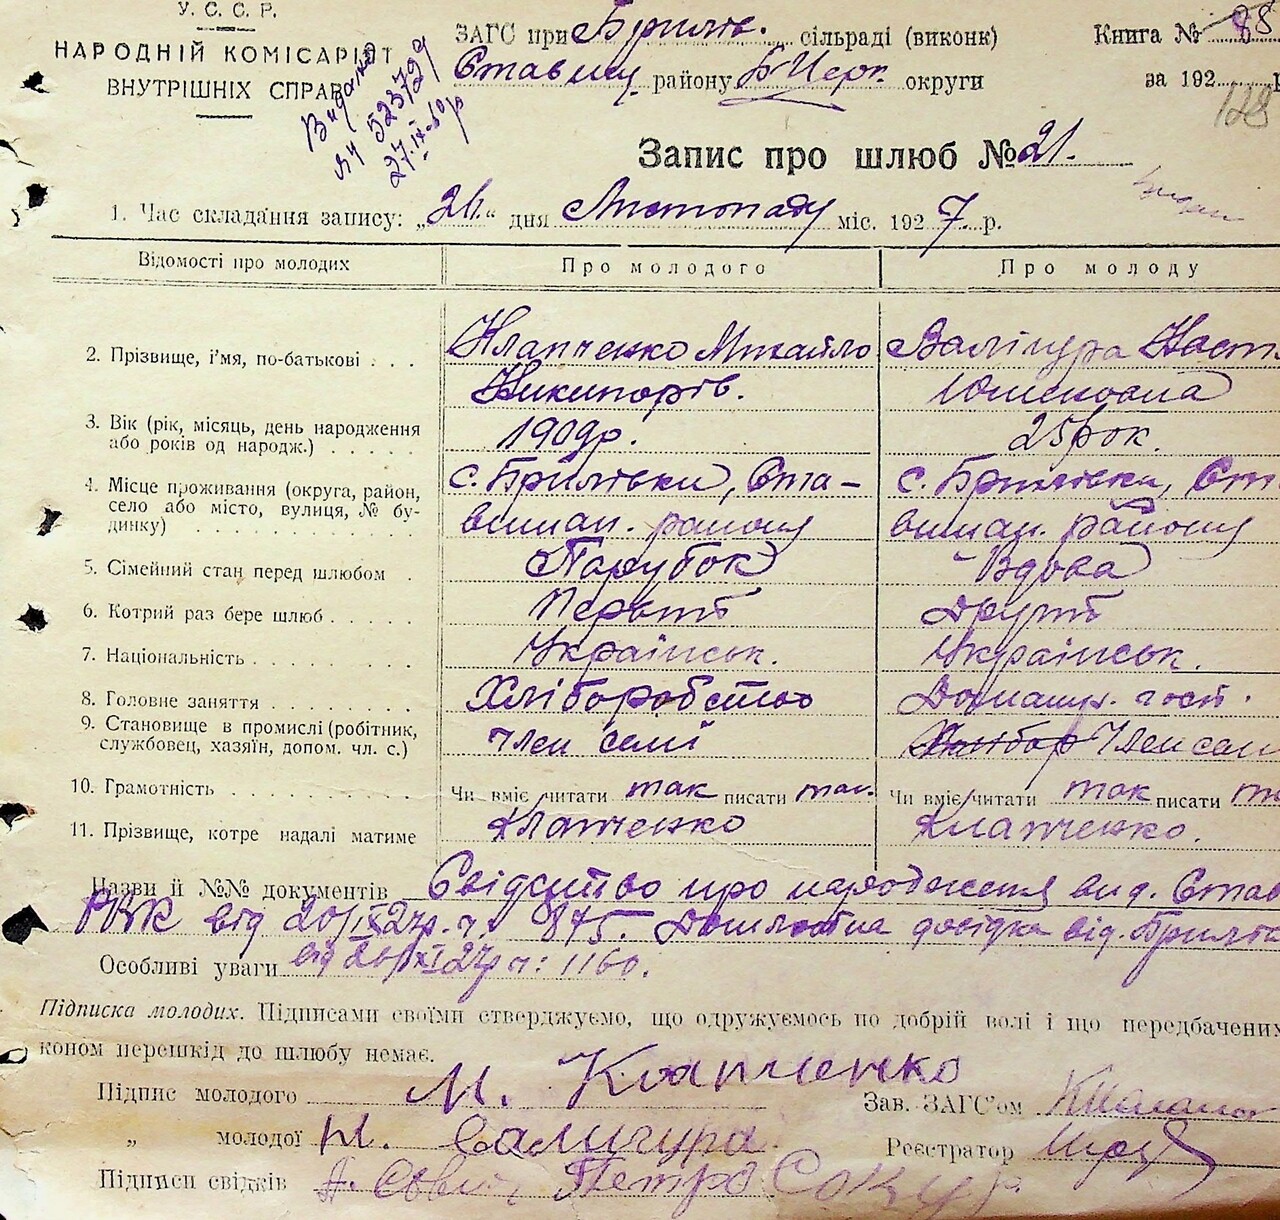 У. С. С. Р.
НАРОДНІЙ КОМІСАРІЯТ
ВНУТРІШНІХ СПРАВ
Видано
ЯЧ 523729
27.IX-60р
ЗАГС при Брилів. сільраді (виконк)
Ставищ. району Б Церк. округи
Книга № 88
за 192 р
128
Запис про шлюб № 21.
1. Час складання запису: „21.“ дня Листопаду міс. 1927 р.
Відомості про молодих Про молодого Про молоду
2. Прізвище, і'мя, по-батькові . . . Клапченко Михайло Валігура Наст
Никипорів.
3. Вік (рік, місяць, день народження або років од народж.) 1909р. 25 рок.
4. Місце проживання (округа, район, село або місто, вулиця, № будинку) с. Брилівки, Ста- с. Брилівки, Ст
вищан. району вищан. району
5. Сімейний стан перед шлюбом . Парубок Вдова
6. Котрий раз бере шлюб Перший Другий
7. Національність Українськ. Українськ.
8. Головне заняття Хліборобство Домашн. госп.
9. Становище в промислі (робітник, службовец, хазяїн, допом. чл. с.) член семї Член сем
10. Грамотність Чи вміє читати так писати так. Чи вміє читати так писати та
11. Прізвище, котре надалі матиме Клапченко Клапченко.
Назви й №№ документів Свідоцтво про народження вид. Став
РВК від 20/IX27р. ч. 875. довідка від. Брилів
Особливі уваги від 20/XI27р ч: 1160.
Підписка молодих. Підписами своїми стверджуємо, що одружуємось по добрій волі і що передбачених
коном перешкід до шлюбу немає.
Підпис молодого М. Клапченко Зав. ЗАГС'ом
„ молодої Н. Валигура. Реєстратор
Підписи свідків Петро Сокур